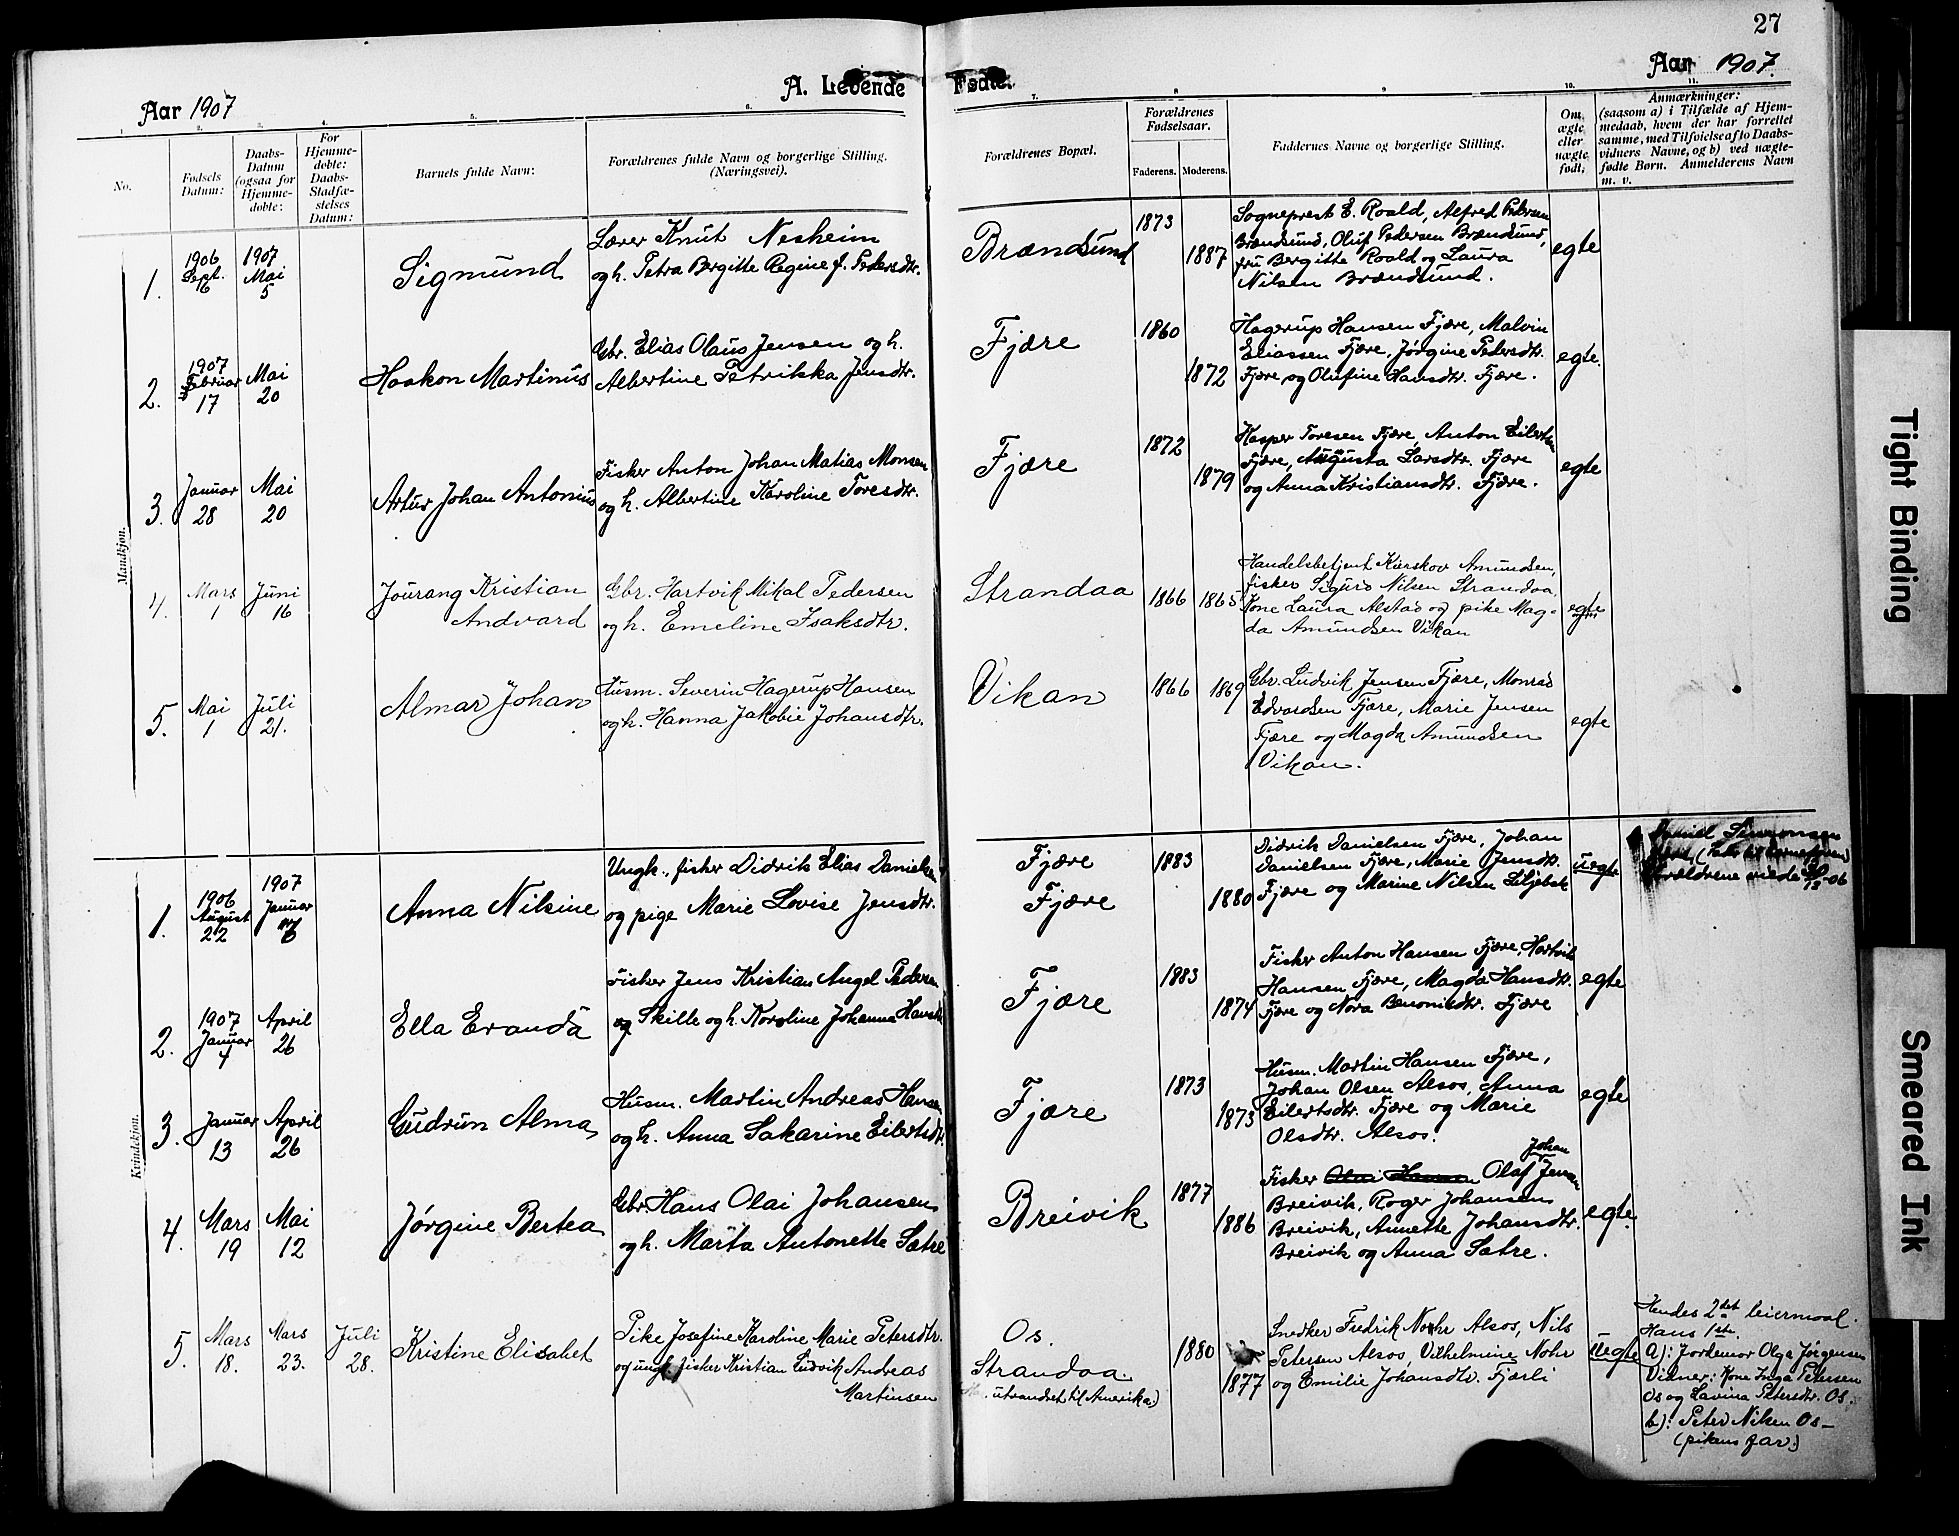 27
Aar 1907
A. Levende
Fødte.
Aar 1907.
1. 2. 3. 4. 5. 6. 7. 8 9 10. 11.
No.
Fødsels
Datum:
Daabs-
Datum
(ogsaa for
Hjemme-
døbte:
For
Hjemme-
døbte:
Daabs-
Stadfæ-
stelses
Datum:
Barnets fulde Navn:
Forældrenes fulde Navn og borgerlige Stilling.
(Næringsvei).
Forældrenes Bopæl.
Forældrenes
Fødselsaar.
Faderens. Moderens.
Faddernes Navne og borgerlige Stilling.
Om
ægte
eller
uægte
født.
Anmærkninger:
(saasom a) i Tilfælde af Hjem-
medaab, hvem der har forrettet
samme, med Tilføielse af to Daabs-
vidners Navne, og b) ved uægte-
fødte Børn. Anmelderens Navn
m. v.
Mandkjøn.
1.
1906
Sept.
16
1907
Mai
5
Sigmund
Lærer Knut Nesheim
og h. Petra Bergitte Regine f. Pedersdtr.
Brændsund
1873
1887
Sogneprest E. Roald, Alfred Pedersen
Brændsund, Oluf Pedersen Brændsund,
fru Bergitte Roald og Laura
Nilsen Brændsund.
egte
2.
1907
Februar
17
Mai
20
Haakon Martinus
Gbr. Elias Olaus Jensen og h.
Albertine Petrikka Jensdtr.
Fjære
1860
1872
Hagerup Hansen Fjære, Malvin
Eliassen Fjære, Jørgine Pedersdtr.
Fjære og Olufine Hansdtr. Fjære.
egte.
3.
Januar
28
Mai
20
Artur Johan Antonius
Fisker Anton Johan Matias Monsen
og h. Albertine Karoline Toresdtr.
Fjære
1872
1879
Kasper Toresen Fjære, Anton Eilertsen
Fjære, Augusta Larsdtr. Fjære
og Anna Kristiansdtr. Fjære.
egte
4.
Mars
1
Juni
16
Jourang Kristian
Andvard
Gbr. Hartvik Mikal Pedersen
og h. Emeline Isaksdtr.
Strandaa
1866
1865
Handelsbetjent Kurskov Amundsen,
fisker Sigurd Nilsen Strandaa,
Kone Laura Alstad og pike Mag-
da Amundsen Vikan
egte
5.
Mai
1
Juli
21.
Almar Johan
Husm. Severin Hagerup Hansen
og h. Hanna Jakobie Johansdtr.
Vikan
1866
1869
Gbr. Ludvik Jensen Fjære, Monrad
Edvardsen Fjære, Marie Jensen
Fjære og Magda Amundsen
Vikan.
egte
Kvindekjøn.
1.
1906
August
22
1907
Januar
6
Anna Nilsine
Ungk., fisker Didrik Elias Danielsen
og pige Marie Lovise Jensdtr.
Fjære
Fjære
1883
1880
Didrik Danielsen Fjære, Johan
Danielsen Fjære, Marie Jensdtr.
Fjære og Marine Nilsen Liljebak
uegte
Daniel Simonsen
Fjære (Far til barnefaren)
Forældrene viede 30/12-06
2.
1907
Januar
4
April
26
Ella Evanda
Fisker Jens Kristian Angel Pedersen
og Skille og h. Karoline Johanna Hansdtr
Fjære
1883
1874
Fisker Anton Hansen Fjære, Hartvik
Hansen Fjære, Magda Hansdtr.
Fjære og Nora Benonisdtr. Fjære
egte
3.
Januar
13
April
26
Gudrun Alma
Husm. Martin Andreas Hansen
og h. Anna Sakarine Eilertsdtr.
Fjære
1873
1873
Husm. Martin Hansen Fjære,
Johan Olsen Alsos, Anna
Eilertsdtr. Fjære og Marie
Olsdtr. Alsos.
egte
4.
Mars
19
Mai
12
Jørgine Bertea
Gbr Hans Olai Johansen
og h. Marta Antonette Sætre
Breivik
1877
1886
Johan
Fisker Olai Hansen Olaf Jensen
Breivik, Roger Johansen
Breivik, Annette Johansdtr.
Breivik og Anna Sætre.
egte.
5.
Mars
18.
Mars
23.
Juli
28.
Kristine Elisabet
Pike Josefine Karoline Marie Petersdtr.
og ungk. fisker Kristian Ludvik Andreas
Martinsen
Os.
Strandaa.
utvandret til Amerika)
1880
1877
Snedker Fredrik Nohr Alsos, Nils
Petersen Alsos, Vilhelmine Nohr
og Emilie Johansdtr. Fjærli
uegte
Hendes 2det leiermaal.
Hans 1ste.
a): Jordemor Olga Jørgensen
Vidner: Kone Inga Petersen
Os og Lavina Petersdtr. Os.
b): Peter Nilsen Os-
(pikens far.)
Tight Binding
Smeared Ink